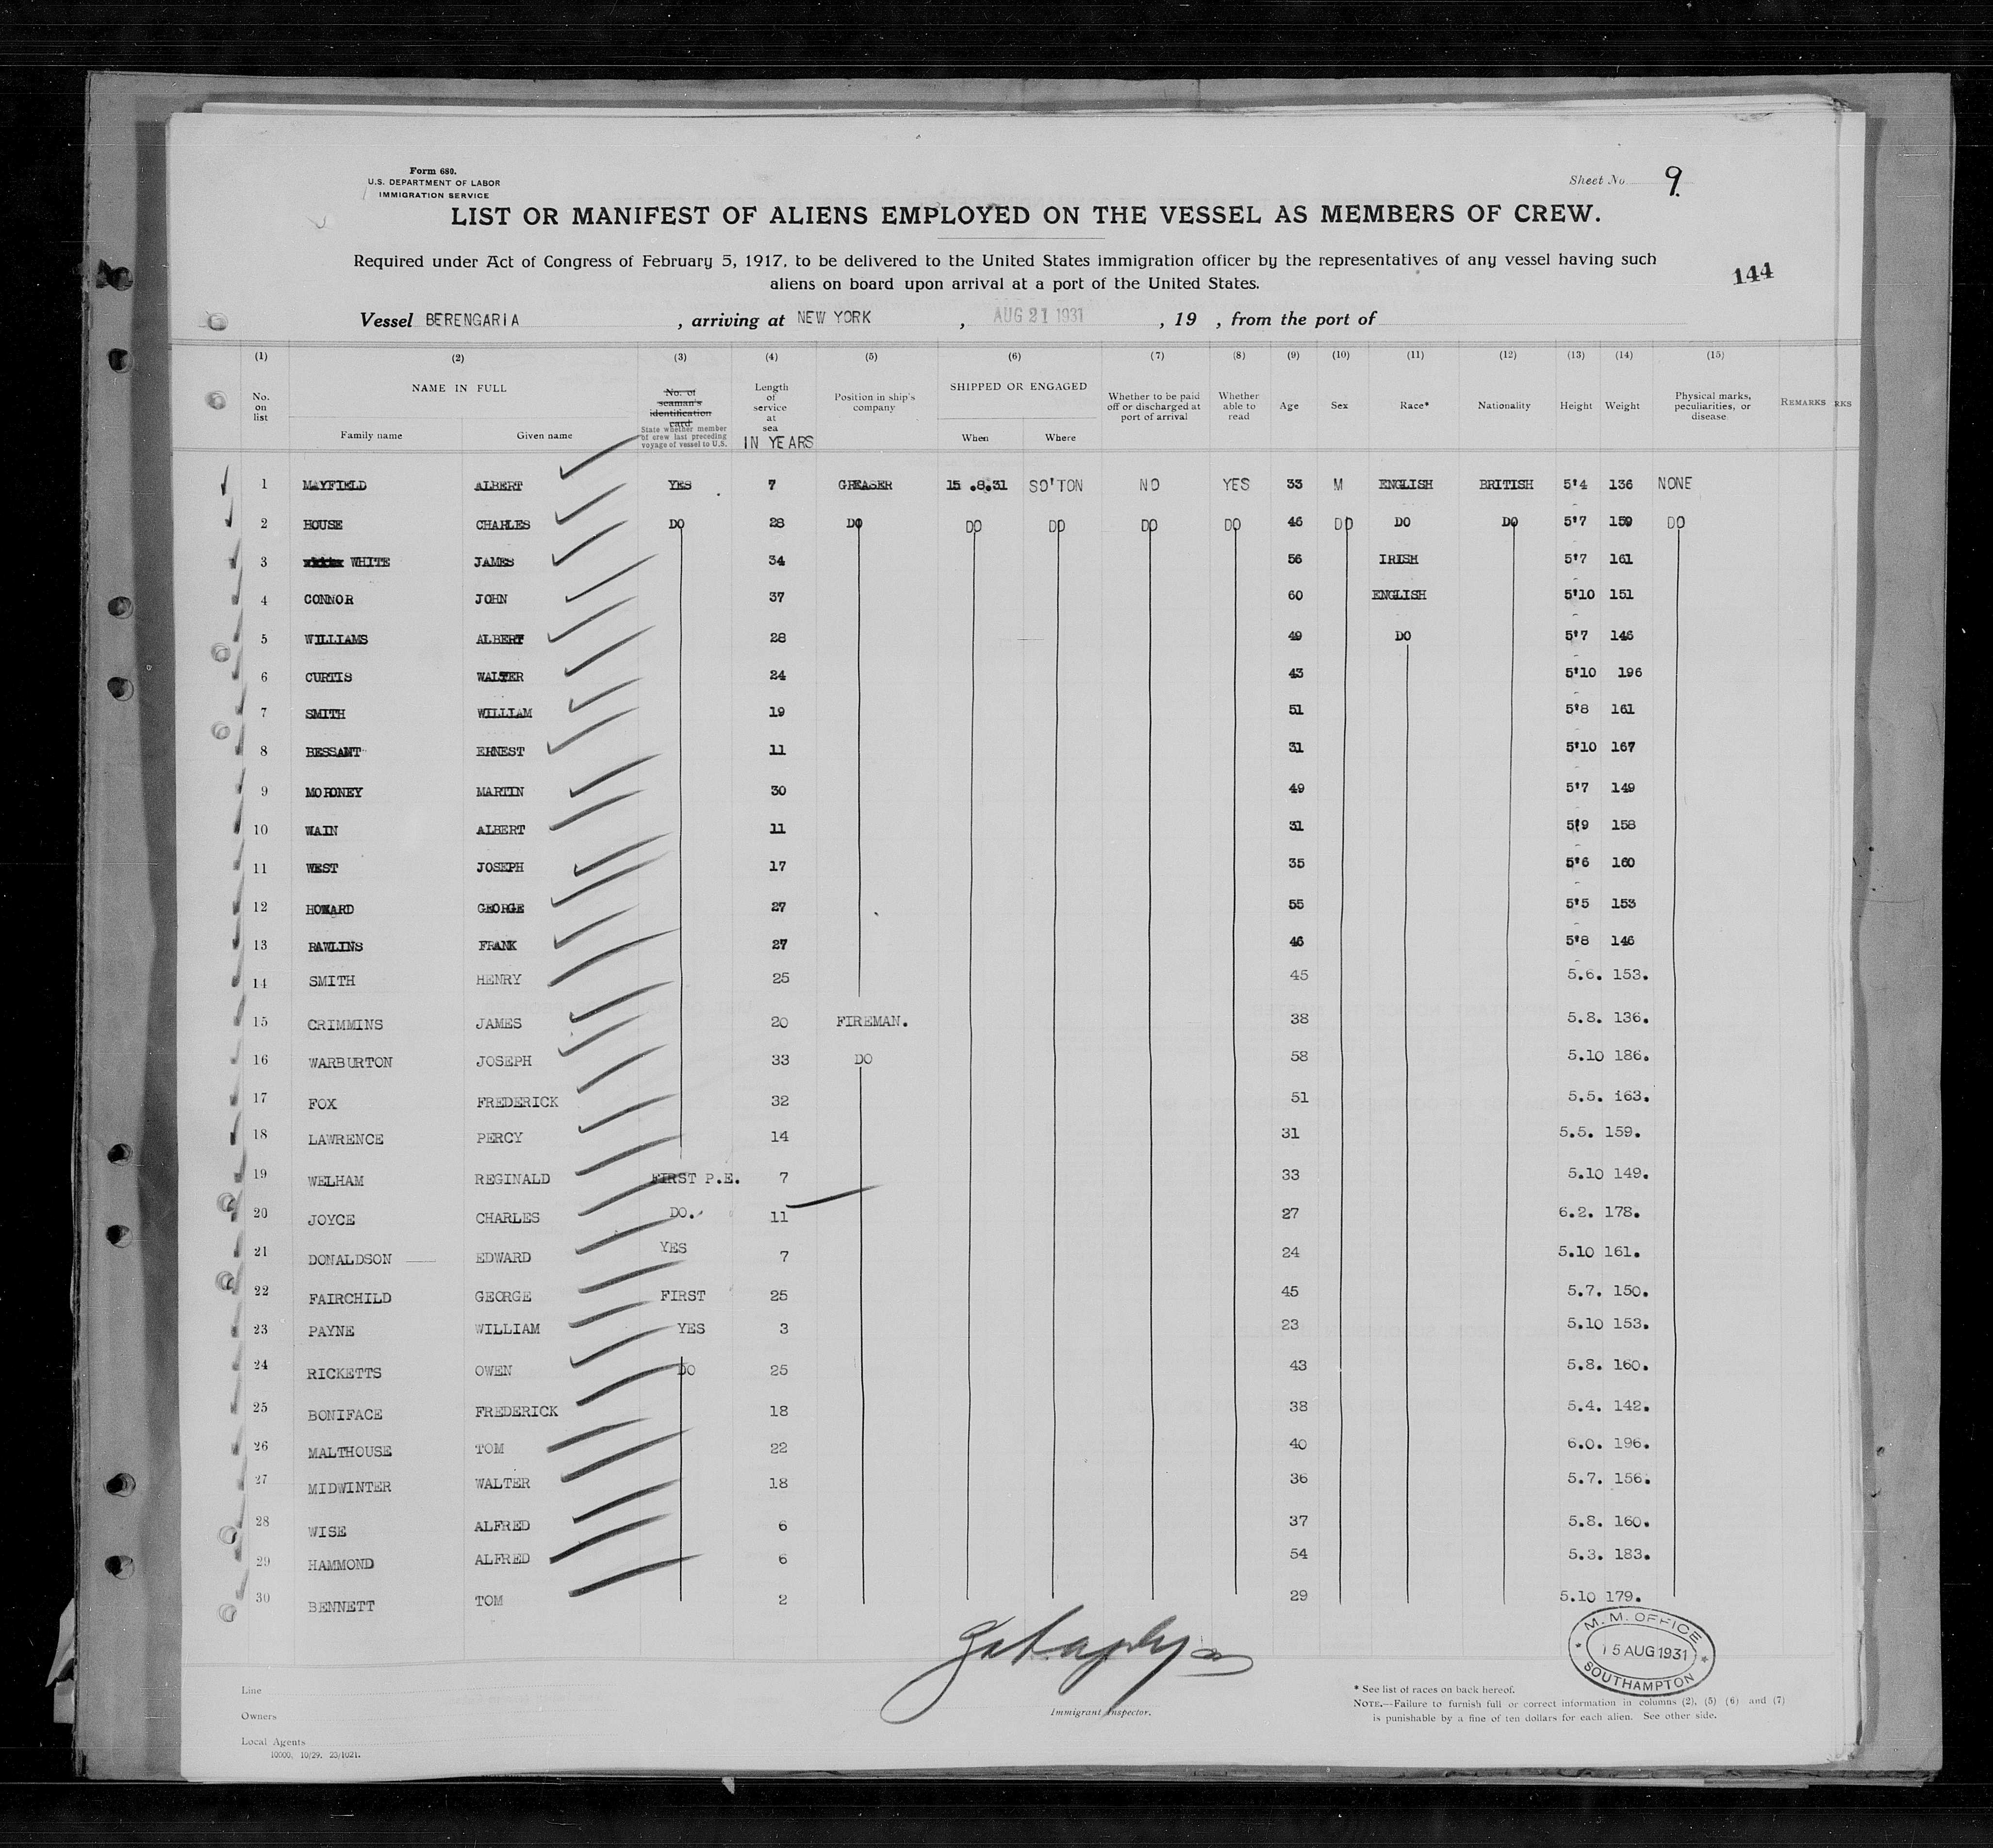 Form 680.
U.S. DEPARTMENT OF LABOR
IMMIGRATION SERVICE
Sheet No. 9.
LIST OR MANIFEST OF ALIENS EMPLOYED ON THE VESSEL AS MEMBERS OF CREW.
Required under Act of Congress of February 5, 1917, to be delivered to the United States immigration officer by the representatives of any vessel having such
aliens on board upon arrival at a port of the United States.
144
Vessel BERENGARIA, arriving at NEW YORK, AUG 21 1931, 19 , from the port of
(1) (2) (3) (4) (5) (6) (7) (8) (9) (10) (11) (12) (13) (14) (15)
No. on list NAME IN FULL Family name Given name No. of seaman's identification card State whether member of crew last preceding voyage of vessel to U.S. Length of service at sea IN YEARS Position in ship's company SHIPPED OR ENGAGED When Where Whether to be paid off or discharged at port of arrival Whether able to read Age Sex Race* Nationality Height Weight Physical marks, peculiarities, or disease REMARKS RKS
1 MAYFIELD ALBERT YES 7 GREASER 15.8.31 SO'TON NO YES 33 M ENGLISH BRITISH 5'4 136 NONE
2 HOUSE CHARLES DO 28 DO DO DO DO DO 46 DO DO DO 5'7 159 DO
3 WHITE JAMES 34 56 IRISH 5'7 161
4 CONNOR JOHN 37 60 ENGLISH 5'10 151
5 WILLIAMS ALBERT 28 49 DO 5'7 146
6 CURTIS WALTER 24 43 5'10 196
7 SMITH WILLIAM 19 51 5'8 161
8 BESSANT ERNEST 11 31 5'10 167
9 MORONEY MARTIN 30 49 5'7 149
10 WAIN ALBERT 11 31 5'9 158
11 WEST JOSEPH 17 35 5'6 160
12 HOWARD GEORGE 27 55 5'5 153
13 RAWLINS FRANK 27 46 5'8 146
14 SMITH HENRY 25 45 5.6. 153.
15 CRIMMINS JAMES 20 FIREMAN. 38 5.8. 136.
16 WARBURTON JOSEPH 33 DO 58 5.10 186.
17 FOX FREDERICK 32 51 5.5. 163.
18 LAWRENCE PERCY 14 31 5.5. 159.
19 WELHAM REGINALD FIRST P.E. 7 33 5.10 149.
20 JOYCE CHARLES DO. 11 27 6.2. 178.
21 DONALDSON EDWARD YES 7 24 5.10 161.
22 FAIRCHILD GEORGE FIRST 25 45 5.7. 150.
23 PAYNE WILLIAM YES 3 23 5.10 153.
24 RICKETTS OWEN DO 25 43 5.8. 160.
25 BONIFACE FREDERICK 18 38 5.4. 142.
26 MALTHOUSE TOM 22 40 6.0. 196.
27 MIDWINTER WALTER 18 36 5.7. 156.
28 WISE ALFRED 6 37 5.8. 160.
29 HAMMOND ALFRED 6 54 5.3. 183.
30 BENNETT TOM 2 29 5.10 179.
M.M. OFFICE
15 AUG 1931
SOUTHAMPTON
Line
Owners
Local Agents
10000, 10/29. 23/1021.
Immigrant Inspector.
* See list of races on back hereof.
NOTE.—Failure to furnish full or correct information in columns (2), (5) (6) and (7)
is punishable by a fine of ten dollars for each alien. See other side.